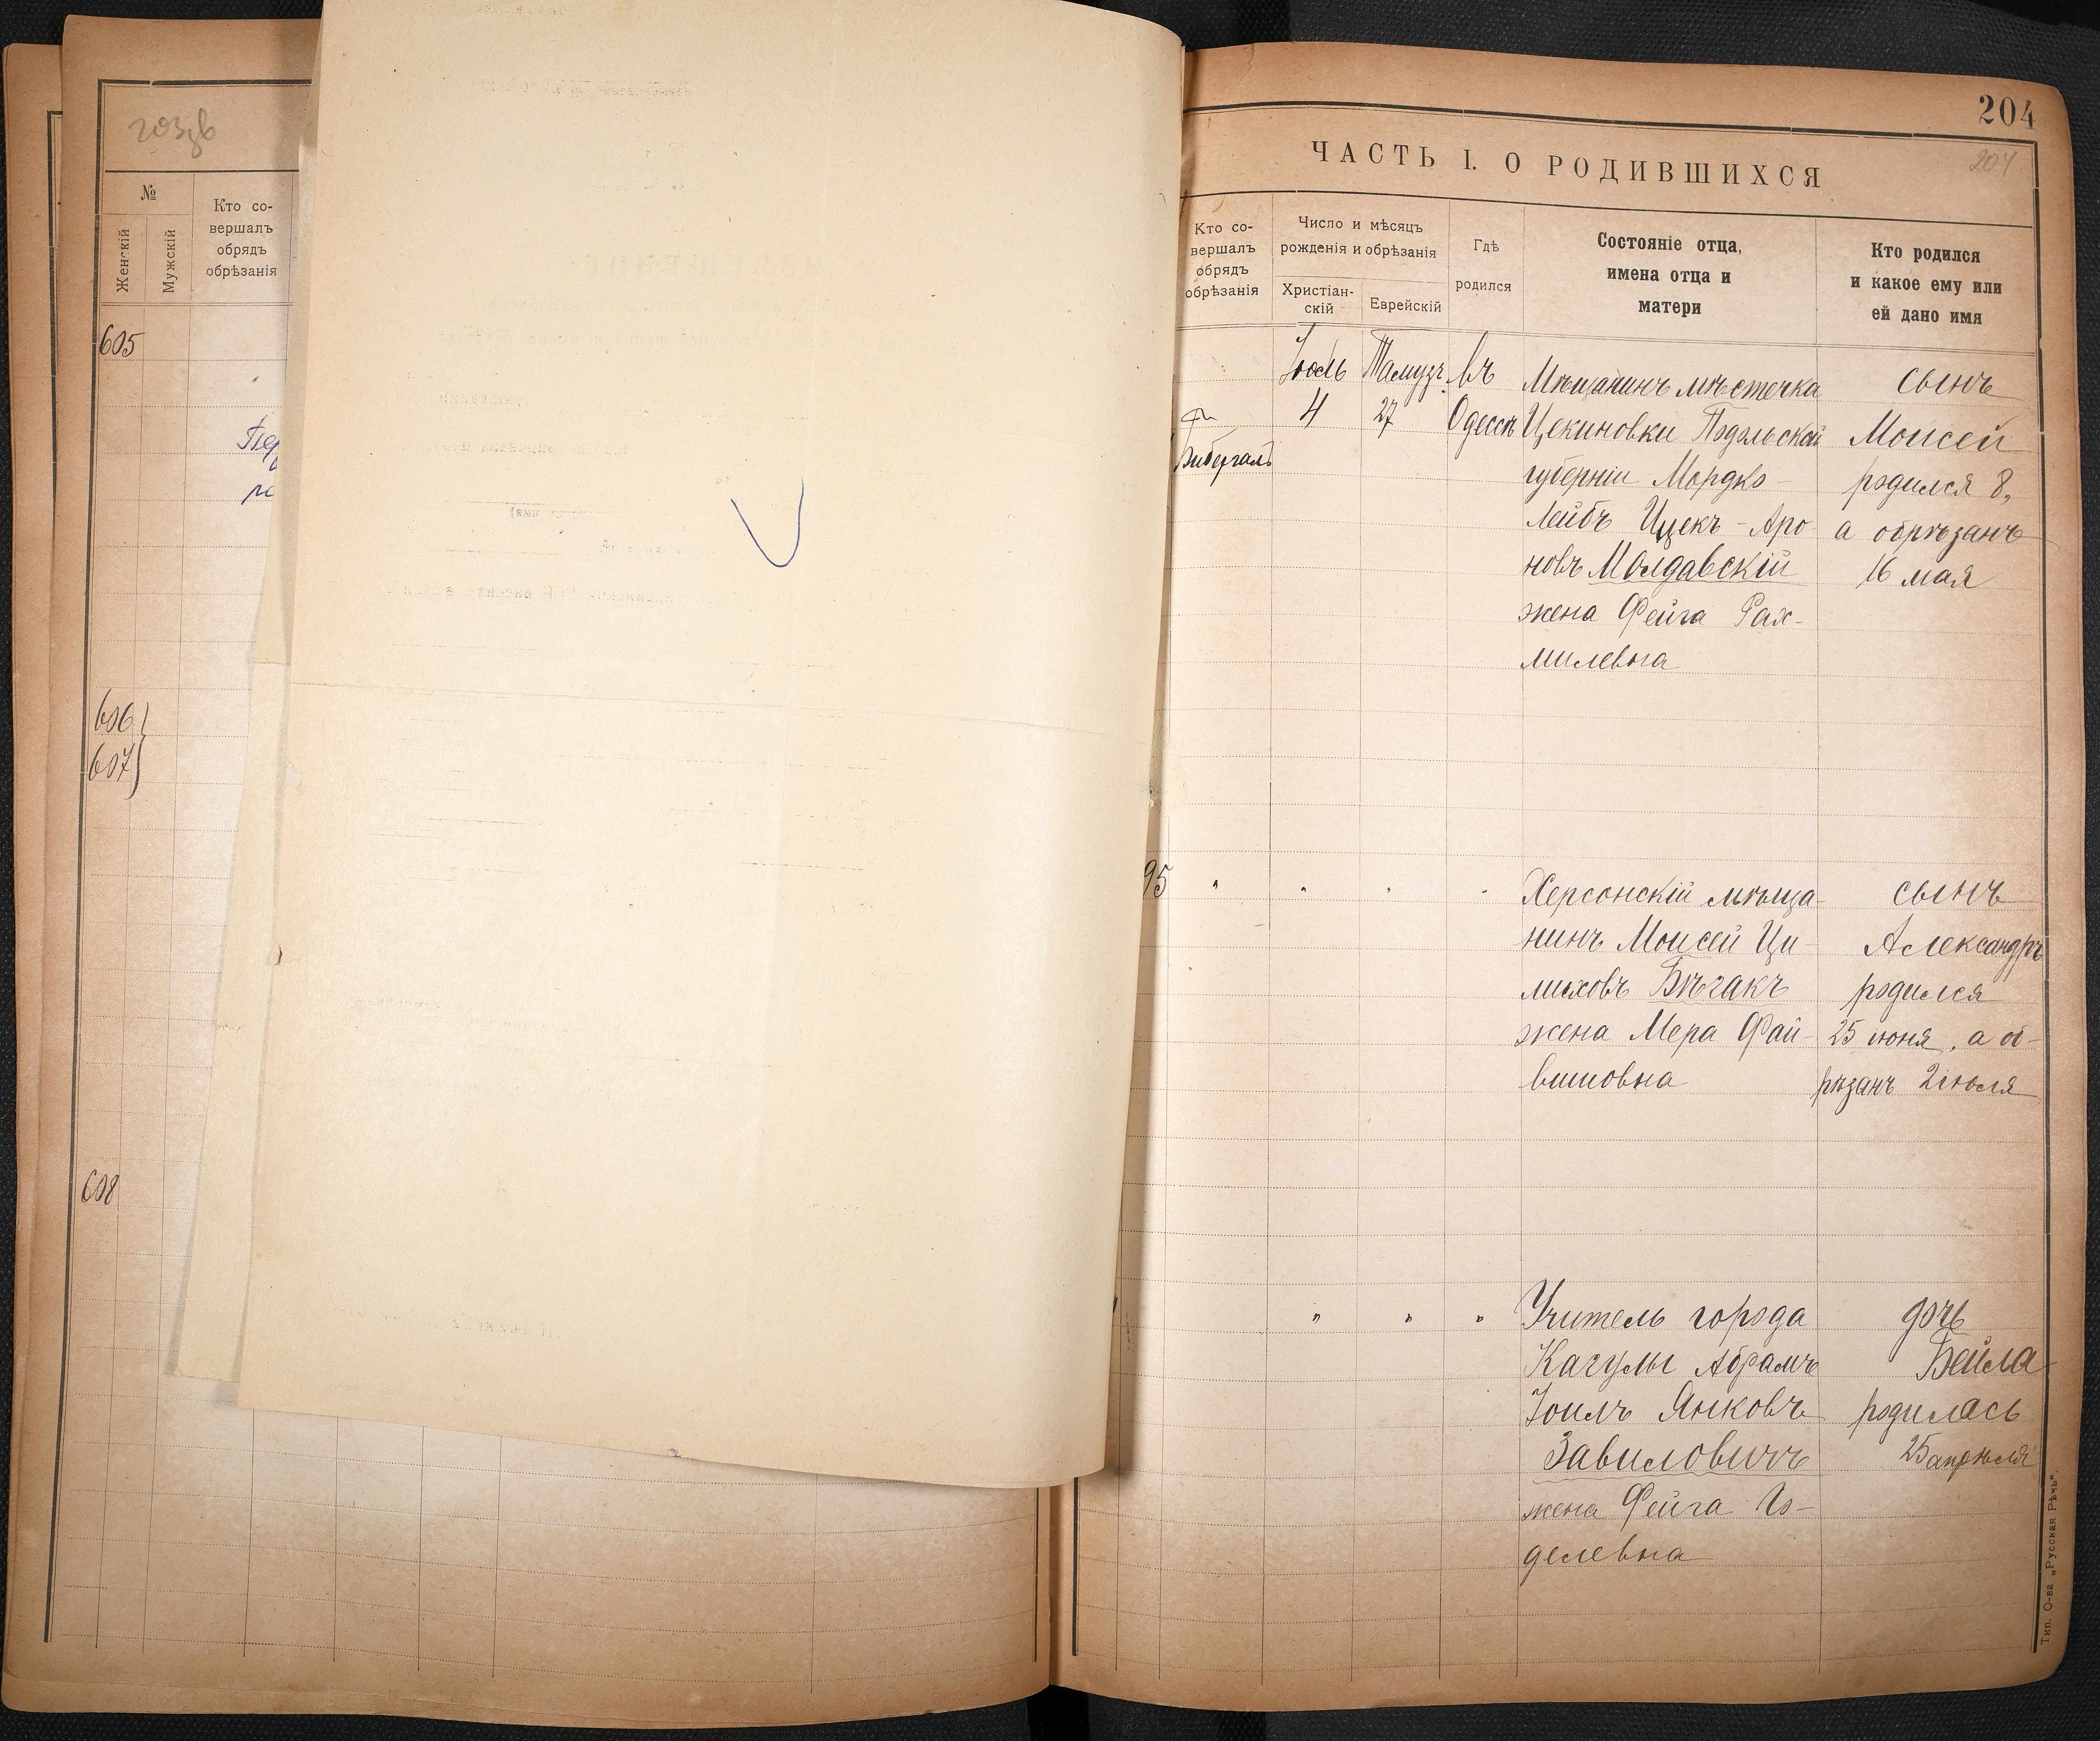 203зв
№
Женскій
Мужскій
Кто со-
вершалъ
обрядъ
обрѣзанія
605
606
607
608
204
204
ЧАСТЬ I. О РОДИВШИХСЯ
Кто со-
вершалъ
обрядъ
обрѣзанія
Число и мѣсяцъ
рожденія и обрѣзанія
Христіан-
скій
Еврейскій
Гдѣ
родился
Состояніе отца,
имена отца и
матери
Кто родился
и какое ему или
ей дано имя
Бибергалъ
Іюль
4
Тамузъ
27
въ
Одессѣ
Мѣщанинъ мѣстечка
Цекиновки Подольской
губерніи Мордко-
Лейбъ Ицекъ-Аро-
новъ Молдавскій
жена Фейга Рах-
милевна
сынъ
Моисей
родился 8,
а обрѣзанъ
16 мая
95
"
"
"
"
Херсонскій мѣща-
нинъ Моисей Ци-
лиховъ Бѣгакъ
жена Мера Фай-
вишовна
сынъ
Александръ
родился
25 іюня, а об-
рѣзанъ 2 іюля
"
"
"
Учитель города
Кагулы Абрамъ
Іоилъ Янковъ
Завиловичъ
жена Фейга Го-
делевна
дочь
Бейла
родилась
25 апрѣля
Тип. О-ва „Русская Рѣчь".